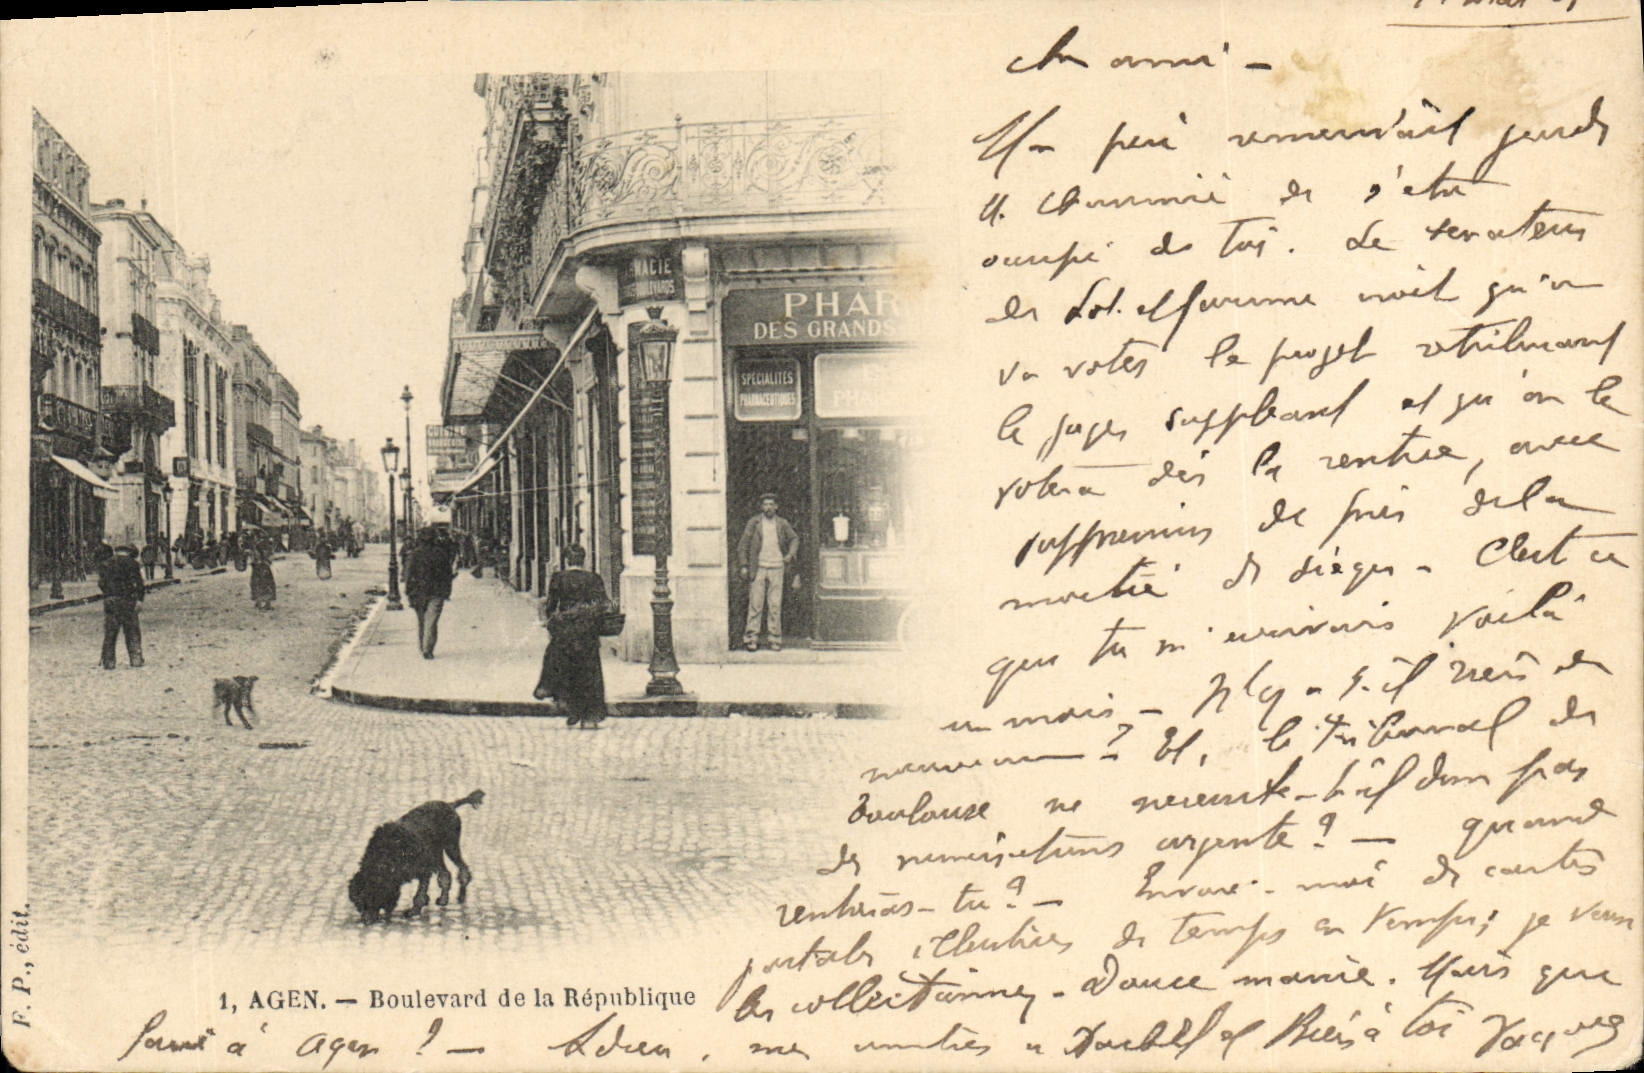 Cher ami —
Mon père remerciait jeudi
M. Chaumié de s'être
occupé de toi. Le senateur
de Lot. et Garonne croit qu'on
va voter le projet rétribuant
le juges suppléant et qu'on le
votera dès la rentrée, avec
suppression de près de la
moitié de sièges — C'est ce
que tu m'écrivais voilà
un mois — N'y a-t-il rien de
nouveau ? Et, le tribunal de
Toulouse ne nécessite-t-il donc pas
des nominations urgentes ? — quand
rentreras-tu ? — Envoie-moi des cartes
postales illustrées de temps en temps ; je veux
les collectionner — Douce manie. Mais que
faire à Agen ? — Adieu, mes amitiés à et Bien à toi Jacques
PHAR
DES GRANDS
MACIE
SPÉCIALITÉS
PHARMACEUTIQUES
PHAR
F. P., édit.
1, AGEN. — Boulevard de la République